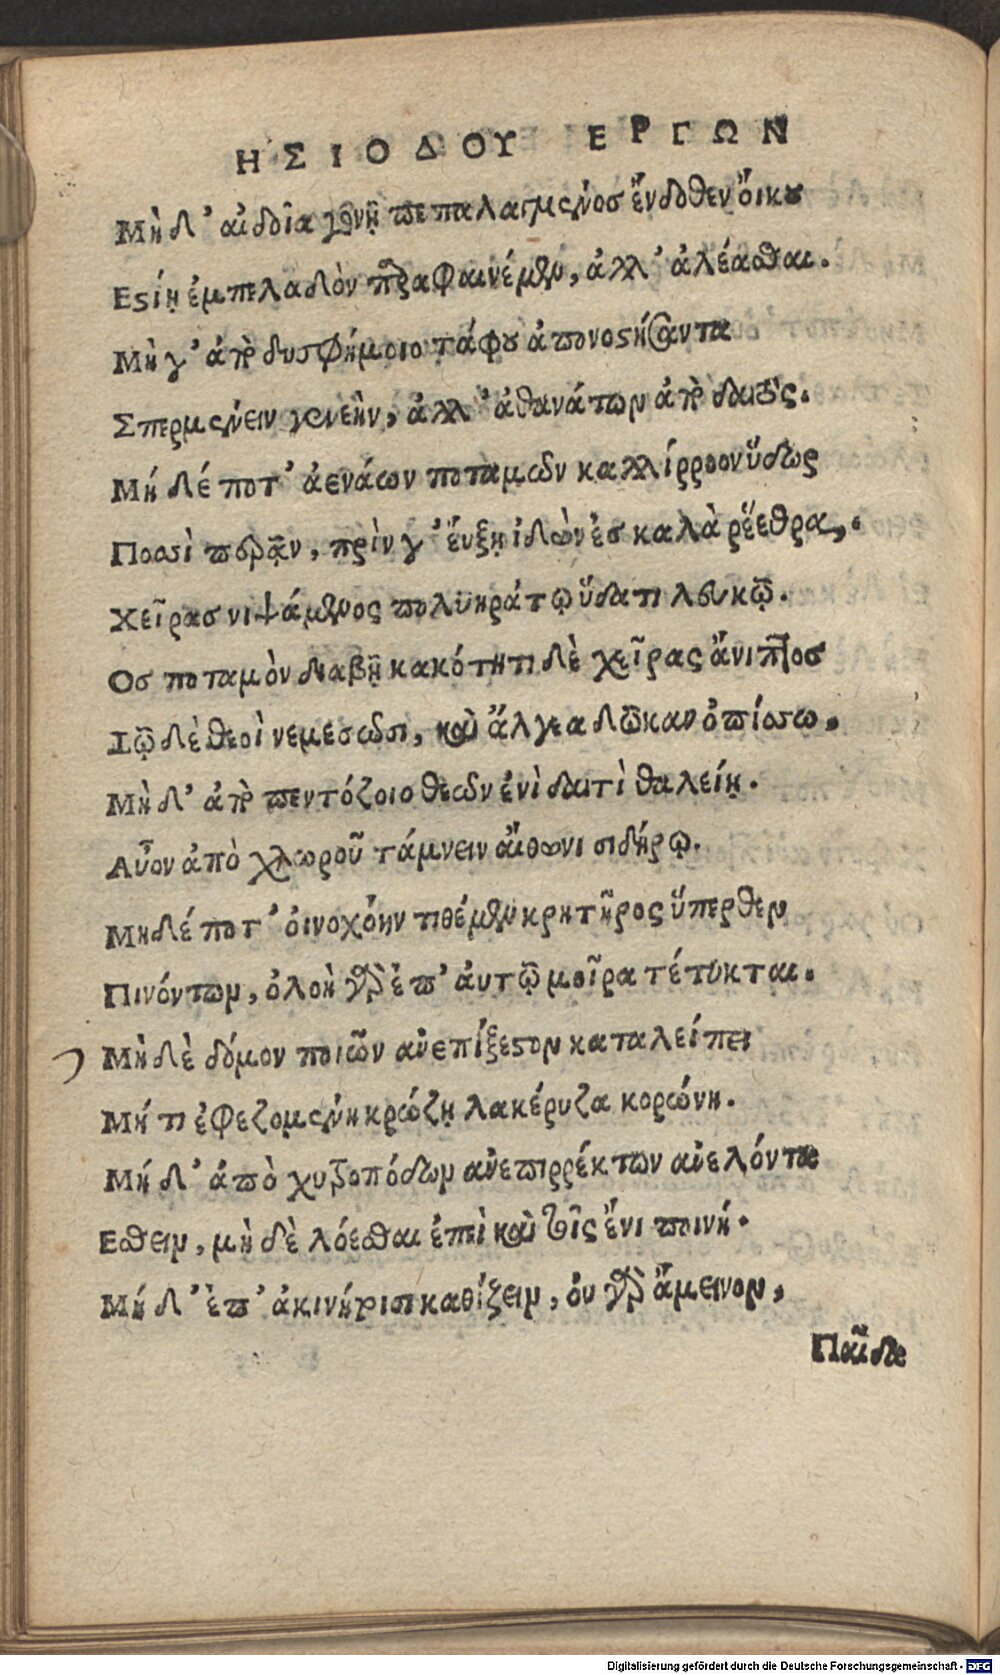 ΗΣΙΟΔΟΥ ΕΡΓΩΝ
Μὴ δ' αἰδοῖα γονῇ πεπαλαγμένος ἔνδοθεν ὄικου
Εστίῃ ἐμπελαδὸν παραφαινέμεν, ἀλλ' ἀλέασθαι.
Μὴ γ' ἀπὸ δυσφήμοιο τάφου ἀπονοστήσαντα
Σπερμαίνειν γενεὴν, ἀλλ' ἀθανάτων ἀπὸ δαιτός.
Μή δέ ποτ' ἀενάων ποταμῶν καλλίρροον ὕδωρ
Ποσσὶ περᾷν, πρίν γ' ἔυξῃ ἰδὼν ἐσ καλὰ ῥέεθρα,.
Χεῖρασ νιψάμενος πολυηράτῳ ὕδατι λευκῷ.
Οσ ποταμὸν διαβῇ κακότητι δὲ χεῖρας ἄνιπτοσ
Τῷ δὲ θεοὶ νεμεσῶσι, καὶ ἄλγεα δῶκαν ὀπίσσω.
Μὴ δ' ἀπὸ πεντόζοιο θεῶν ἐνὶ δαιτὶ θαλείῃ.
Αὖον ἀπὸ χλωροῦ τάμνειν αἴθωνι σιδήρῳ.
Μηδέ ποτ' ὀινοχόην τιθέμεν κρητῆρος ὕπερθεν
Πινόντων, ὀλοὴ γὰρ ἐπ' ἀυτῷ μοῖρα τέτυκται.
Μὴ δὲ δόμον ποιῶν ἀνεπίξεστον καταλείπειν
Μή τι ἐφεζομένη κρώζῃ λακέρυζα κορώνη.
Μή δ' ἀπὸ χυτροπόδων ἀνεπιρρέκτων ἀνελόντα
Εσθειν, μὴ δὲ λόεσθαι ἐπὶ καὶ τοῖς ἔνι ποινή.
Μή δ' ἐπ' ἀκινήτοισι καθίζειν, ὀυ γὰρ ἄμεινον,
Παῖδα